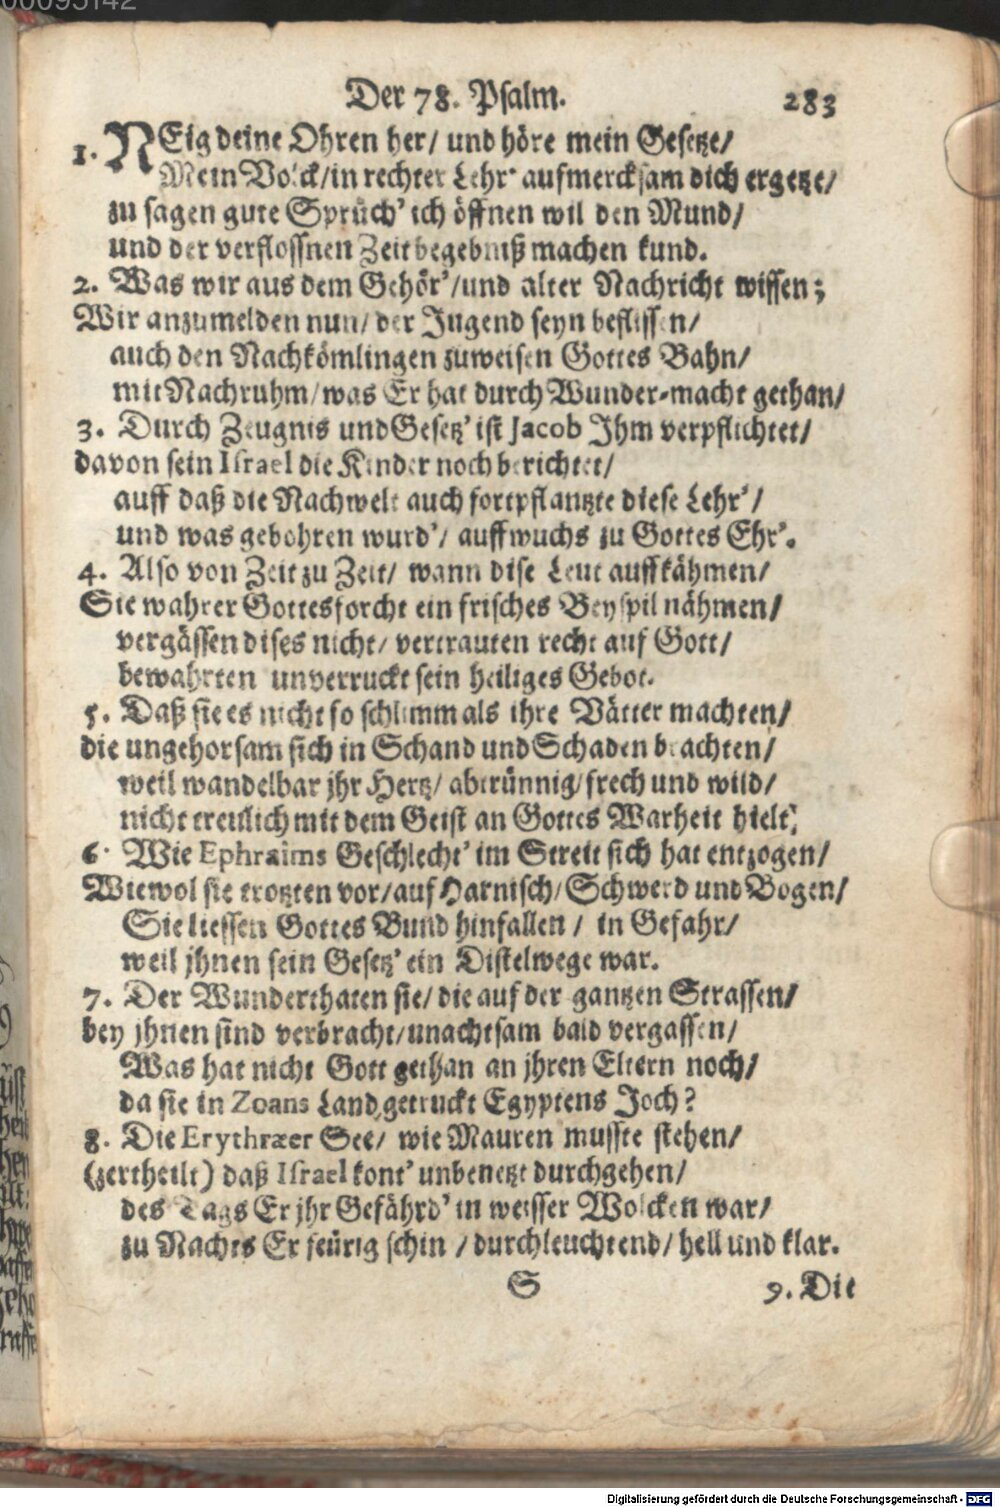 00095142
Der 78. Psalm. 283
1. NEig deine Ohren her/ und höre mein Gesetze/
Mein Volck/in rechter Lehr' aufmercksam dich ergetze/
zu sagen gute Sprüch' ich öffnen wil den Mund/
und der verflossnen Zeit begebniß machen kund.
2. Was wir aus dem Gehör'/und alter Nachricht wissen;
Wir anzumelden nun/ der Jugend seyn beflissen/
auch den Nachkömlingen zuweisen Gottes Bahn/
mit Nachruhm/was Er hat durch Wunder-macht gethan/
3. Durch Zeugnis und Gesetz' ist Jacob Ihm verpflichtet/
davon sein Israel die Kinder noch berichtet/
auff daß die Nachwelt auch fortpflantzte diese Lehr'/
und was gebohren wurd'/ auffwuchs zu Gottes Ehr'.
4. Also von Zeit zu Zeit/ wann dise Leut auffkähmen/
Sie wahrer Gottesforcht ein frisches Beyspil nähmen/
vergässen dises nicht/ vertrauten recht auf Gott/
bewahrten unverruckt sein heiliges Gebot.
5. Daß sie es nicht so schlimm als ihre Vätter machten/
die ungehorsam sich in Schand und Schaden brachten/
weil wandelbar jhr Hertz/ abtrünnig/frech und wild/
nicht treulich mit dem Geist an Gottes Warheit hielt;
6. Wie Ephraims Geschlecht' im Streit sich hat entzogen/
Wiewol sie trotzten vor/auf Harnisch/Schwerd und Bogen/
Sie liessen Gottes Bund hinfallen / in Gefahr/
weil jhnen sein Gesetz' ein Distelwege war.
7. Der Wunderthaten sie/ die auf der gantzen Strassen/
bey jhnen sind verbracht/unachtsam bald vergassen/
Was hat nicht Gott gethan an jhren Eltern noch/
da sie in Zoans Land, getruckt Egyptens Joch?
8. Die Erythræer See/ wie Mauren musste stehen/
(zertheilt) daß Israel kont' unbenetzt durchgehen/
des Tags Er jhr Gefährd' in weisser Wolcken war/
zu Nachts Er feürig schin / durchleuchtend/ hell und klar.
S 9. Die
Digitalisierung gefördert durch die Deutsche Forschungsgemeinschaft - DFG